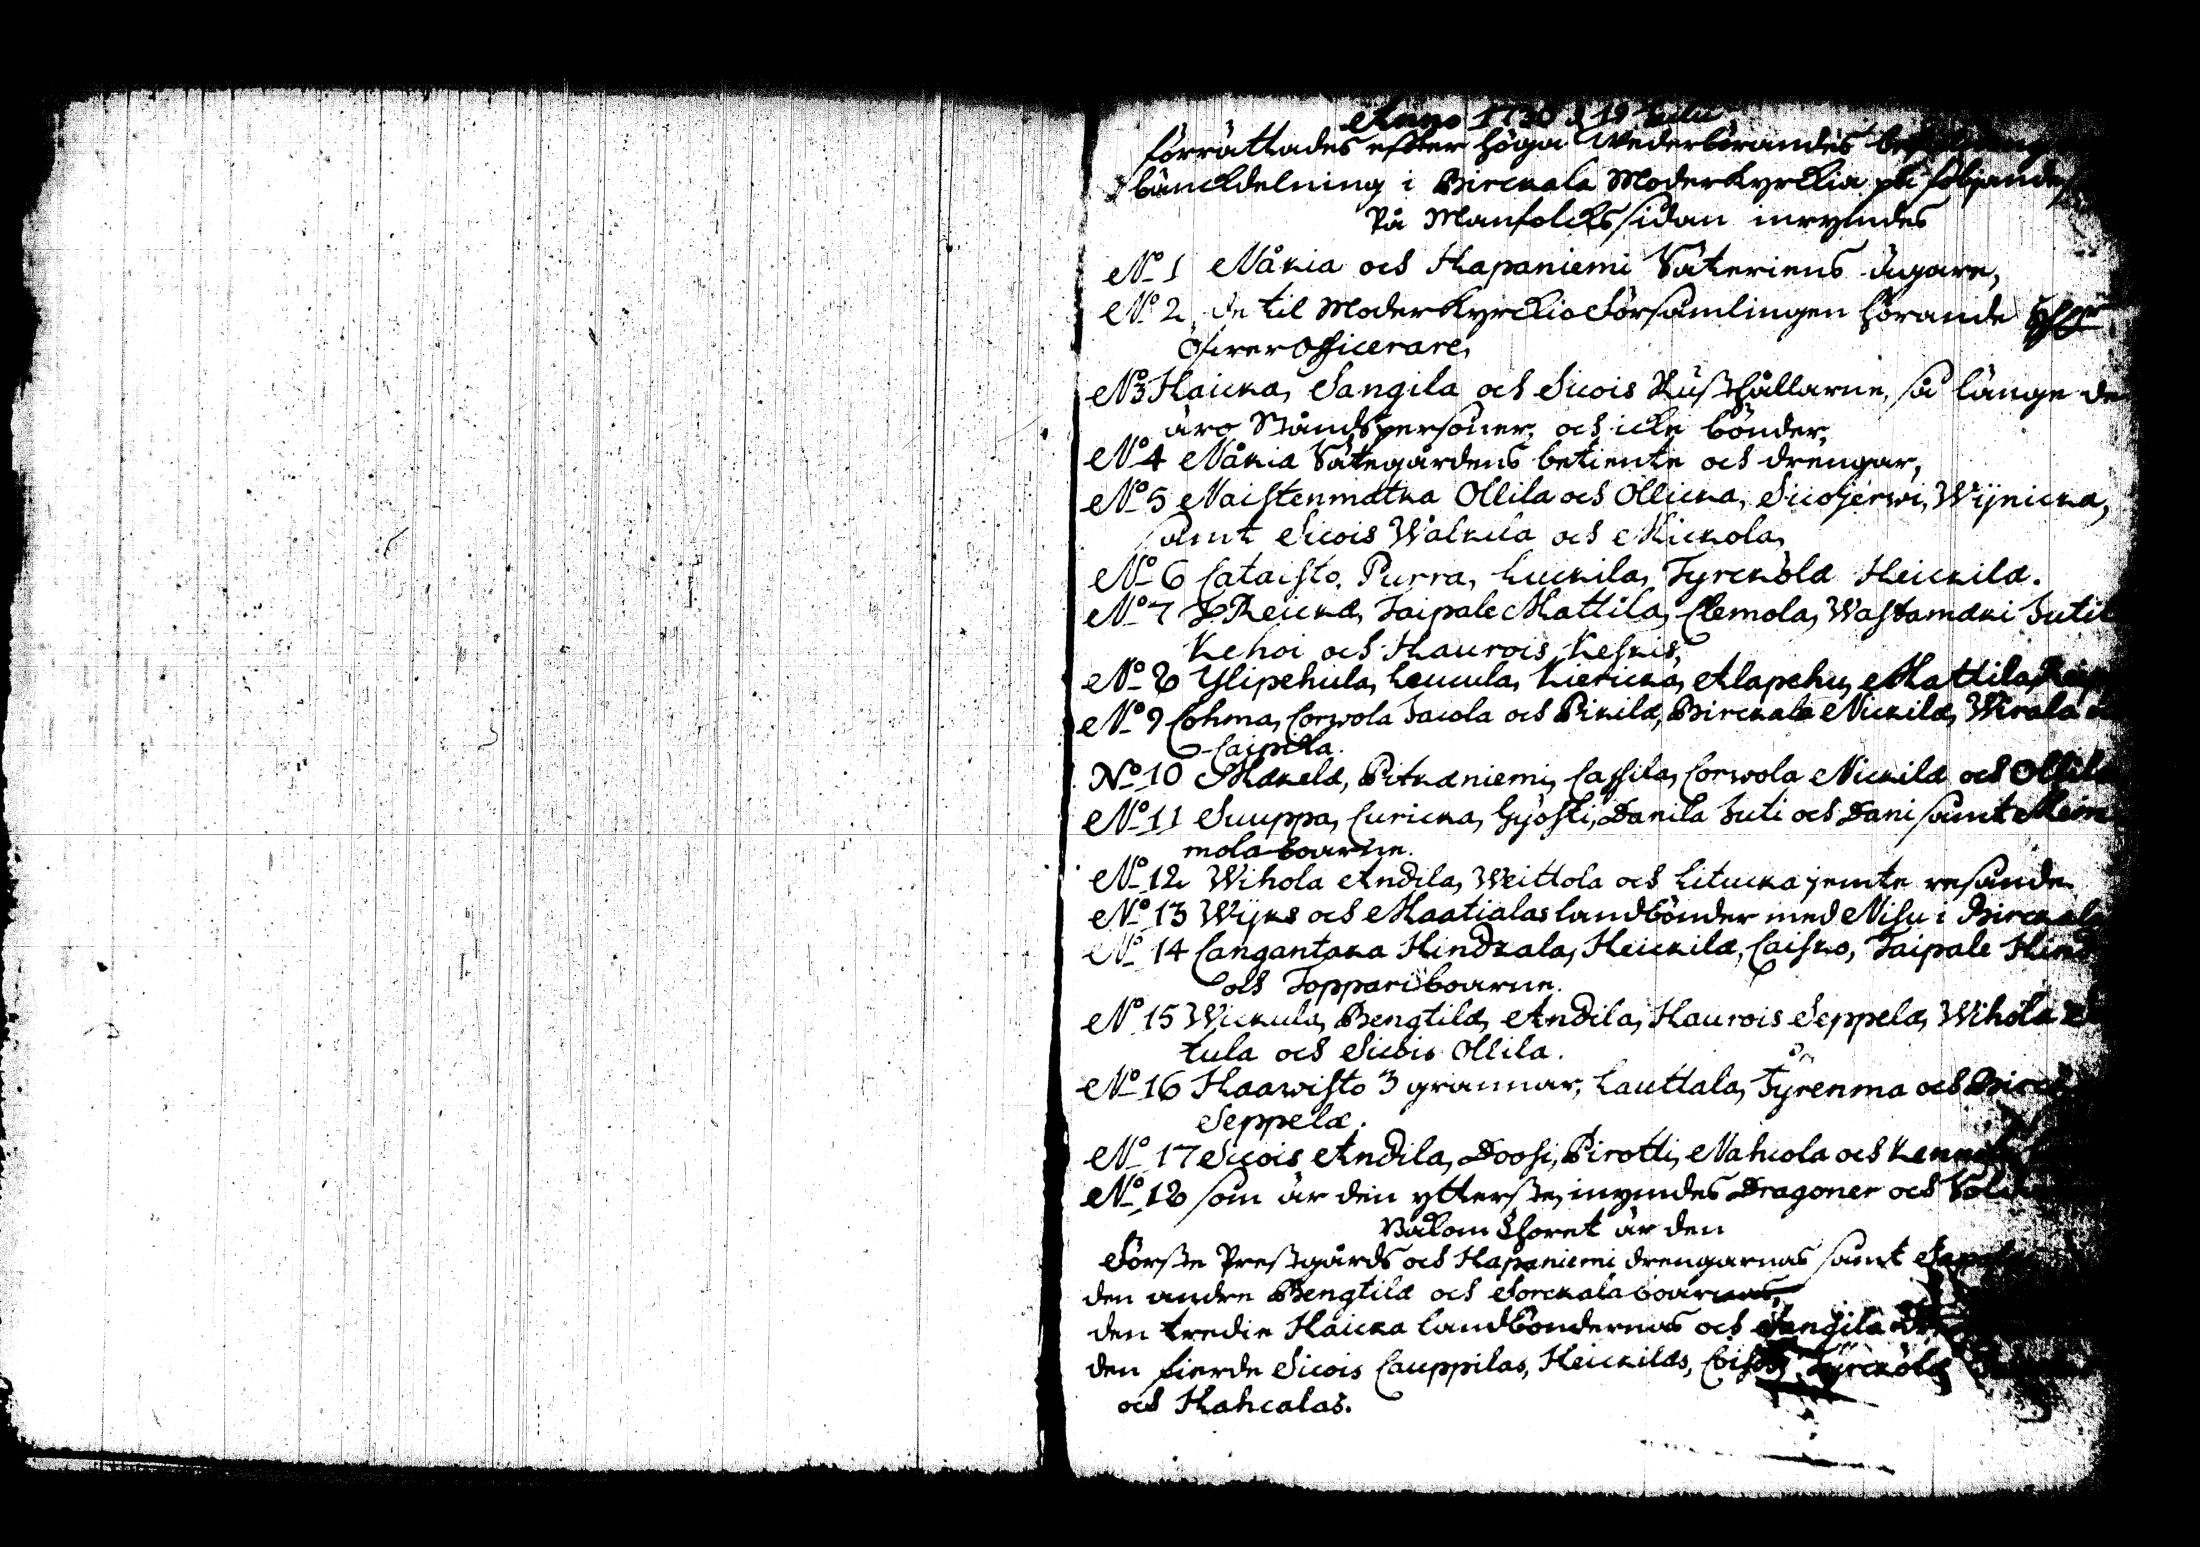 Anno 1730 d 19 Julii
förrättades efter höga wederbörandes
bänckdelning i Birckala Moderkyrckia på följande
På Manfolcks sidan inrymdes
No 1 Nåkia och Hapaniemi Säteriens ägare,
No 2 de til Moderkyrckio Församlingen hörande
Öfwer Officerare,
No 3 Haicka, Sangila och Siwois Rusthållarne, så länge de
äro Ståndspersoner, och icke bönder,
No 4 Nåkia Sätegårdens betiente och drengar,
No 5 Naistenmatka Ollila och Ollicka, Siwojerwi, Wijnicka,
samt Siwois Walkila och Mickola,
No 6 Cataisto, Purra, Luckila, Tyrckölä Heickilä.
No 7 Reickä, Taipale Mattila, Clemola, Wastamäki Juti
Kehoi och Haurois Keskis,
No 8 Ylipehula, Leucula, Kiericka, Alapehu, Mattila
No 9 Lohma, Corwola Jacola och Pikilä, Birckala Nickilä, Wirala
Caipila.
No 10 Mäkelä, Pitkäniemi, Cassila, Corwola Nickilä och Ollila
No 11 Suuppa, Curicka, Hyösti, Danila Juti och Dani samt Hein
mola boarne.
No 12 Wihola Andila, Weittola och Litucka jemte resande
No 13 Wijks och Haatialas landbönder med Nisu i Birckala
No 14 Cangantaka Hindrala, Heickilä, Caisko, Taipale Hind
och Toppari boarne.
No 15 Wickula, Bengtilä, Andila, Haurois Seppelä, Wihola
tula och Siwois Ollila.
No 16 Haawisto 3 grannar, Lauttala, Tyrenmä och Birck
Seppelä.
No 17 Siwois Andila, Doosi, Pirotti, Nahiola och
No 18 som är den ytterste, inrymdes Dragoner och
Bakom Choret är den
Förste Prestgårds och Hapaniemi drengarnas samt
den andre Bengtilä och Sorckala boarnas,
den tredie Haicka landböndernas och Sangila
den fierde Siwois Cauppilas, Heickiläs, Tyrckölä
och Hahcalas.